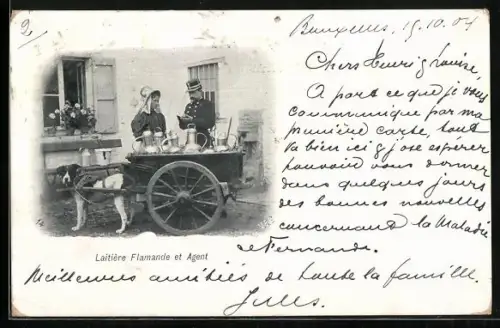 2
Bruxelles, 15.10.07
Chers Henri & Louise,
A part ce que je vous
communique par ma
première carte, tout
va bien ici & j'ose espérer
pouvoir vous donner
dans quelques jours
des bonnes nouvelles
concernant la Maladie
de Fernande.
Laitière Flamande et Agent
Meilleures amitiés de toute la famille.
Jules.